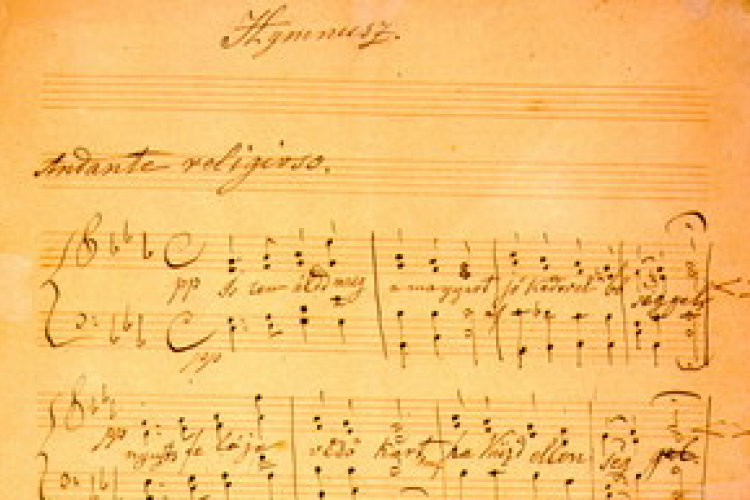 Hymnusz.
Andante religioso.
pp Is ten áldd meg a magyart jó kedvvel bő séggel
pp
pp nyujts fe lé je védő kart ha küzd ellen ség gel.